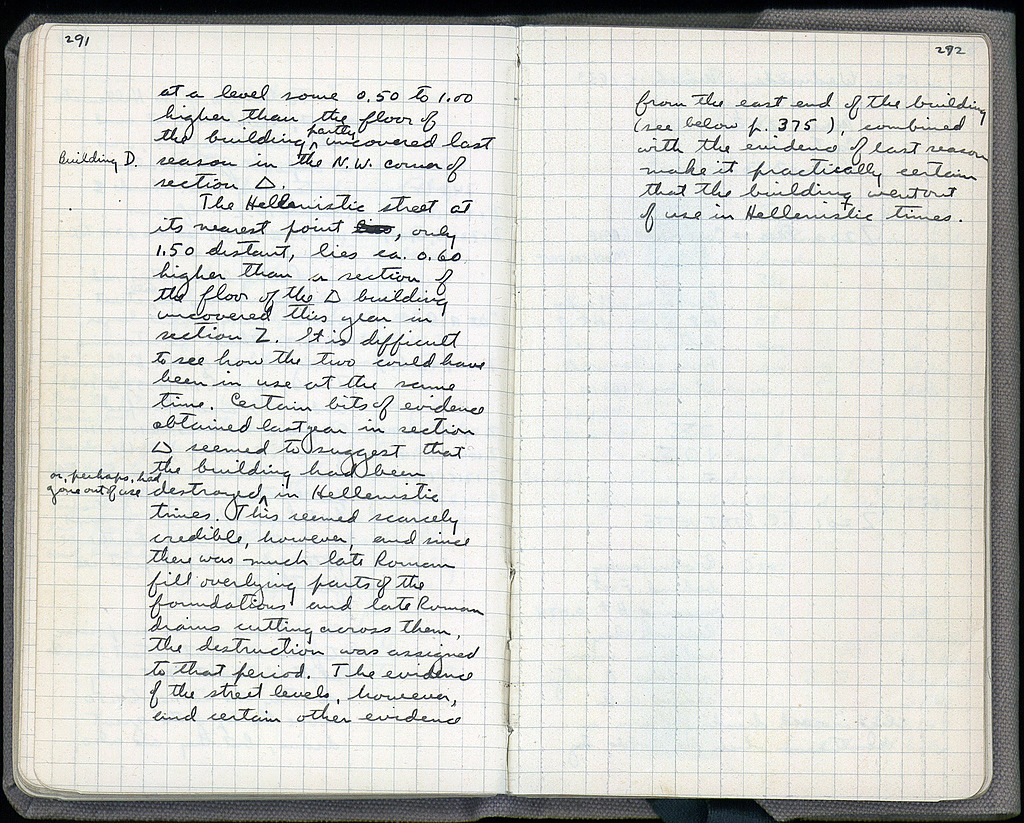 291
at a level some 0.50 to 1.00
higher than the floor of
the building partly uncovered last
Building D.
season in the N.W. corner of
section Δ.
The Hellenistic street at
its nearest point, only
1.50 distant, lies ca. 0.60
higher than a section of
the floor of the Δ building
uncovered this year in
section Z. It is difficult
to see how the two could have
been in use at the same
time. Certain bits of evidence
obtained last year in section
Δ seemed to suggest that
the building had been
or, perhaps, had
gone out of use
destroyed ^ in Hellenistic
times. This seemed scarcely
credible, however, and since
there was much late Roman
fill overlying parts of the
foundations and late Roman
drains cutting across them,
the destruction was assigned
to that period. The evidence
of the street levels, however,
and certain other evidence
292
from the east end of the building
(see below p. 375), combined
with the evidence of last season
make it practically certain
that the building went out
of use in Hellenistic times.